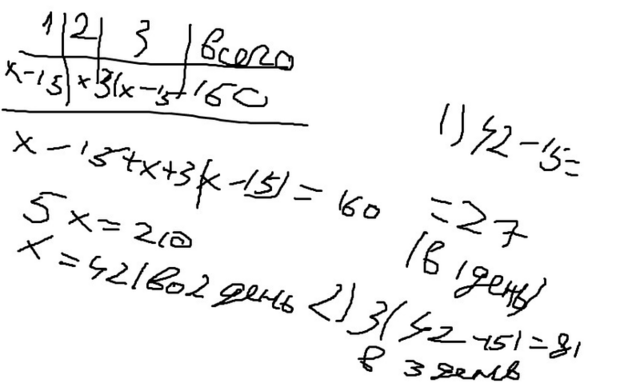 1 | 2 | 3 | всего
x-15 | x | 3(x-15 | 150
x-15+x+3(x-15)=160
5x=210
x=42(во 2 день
1) 42-15=
=27
(в 1 день)
2) 3(42-15)=81
в 3 день